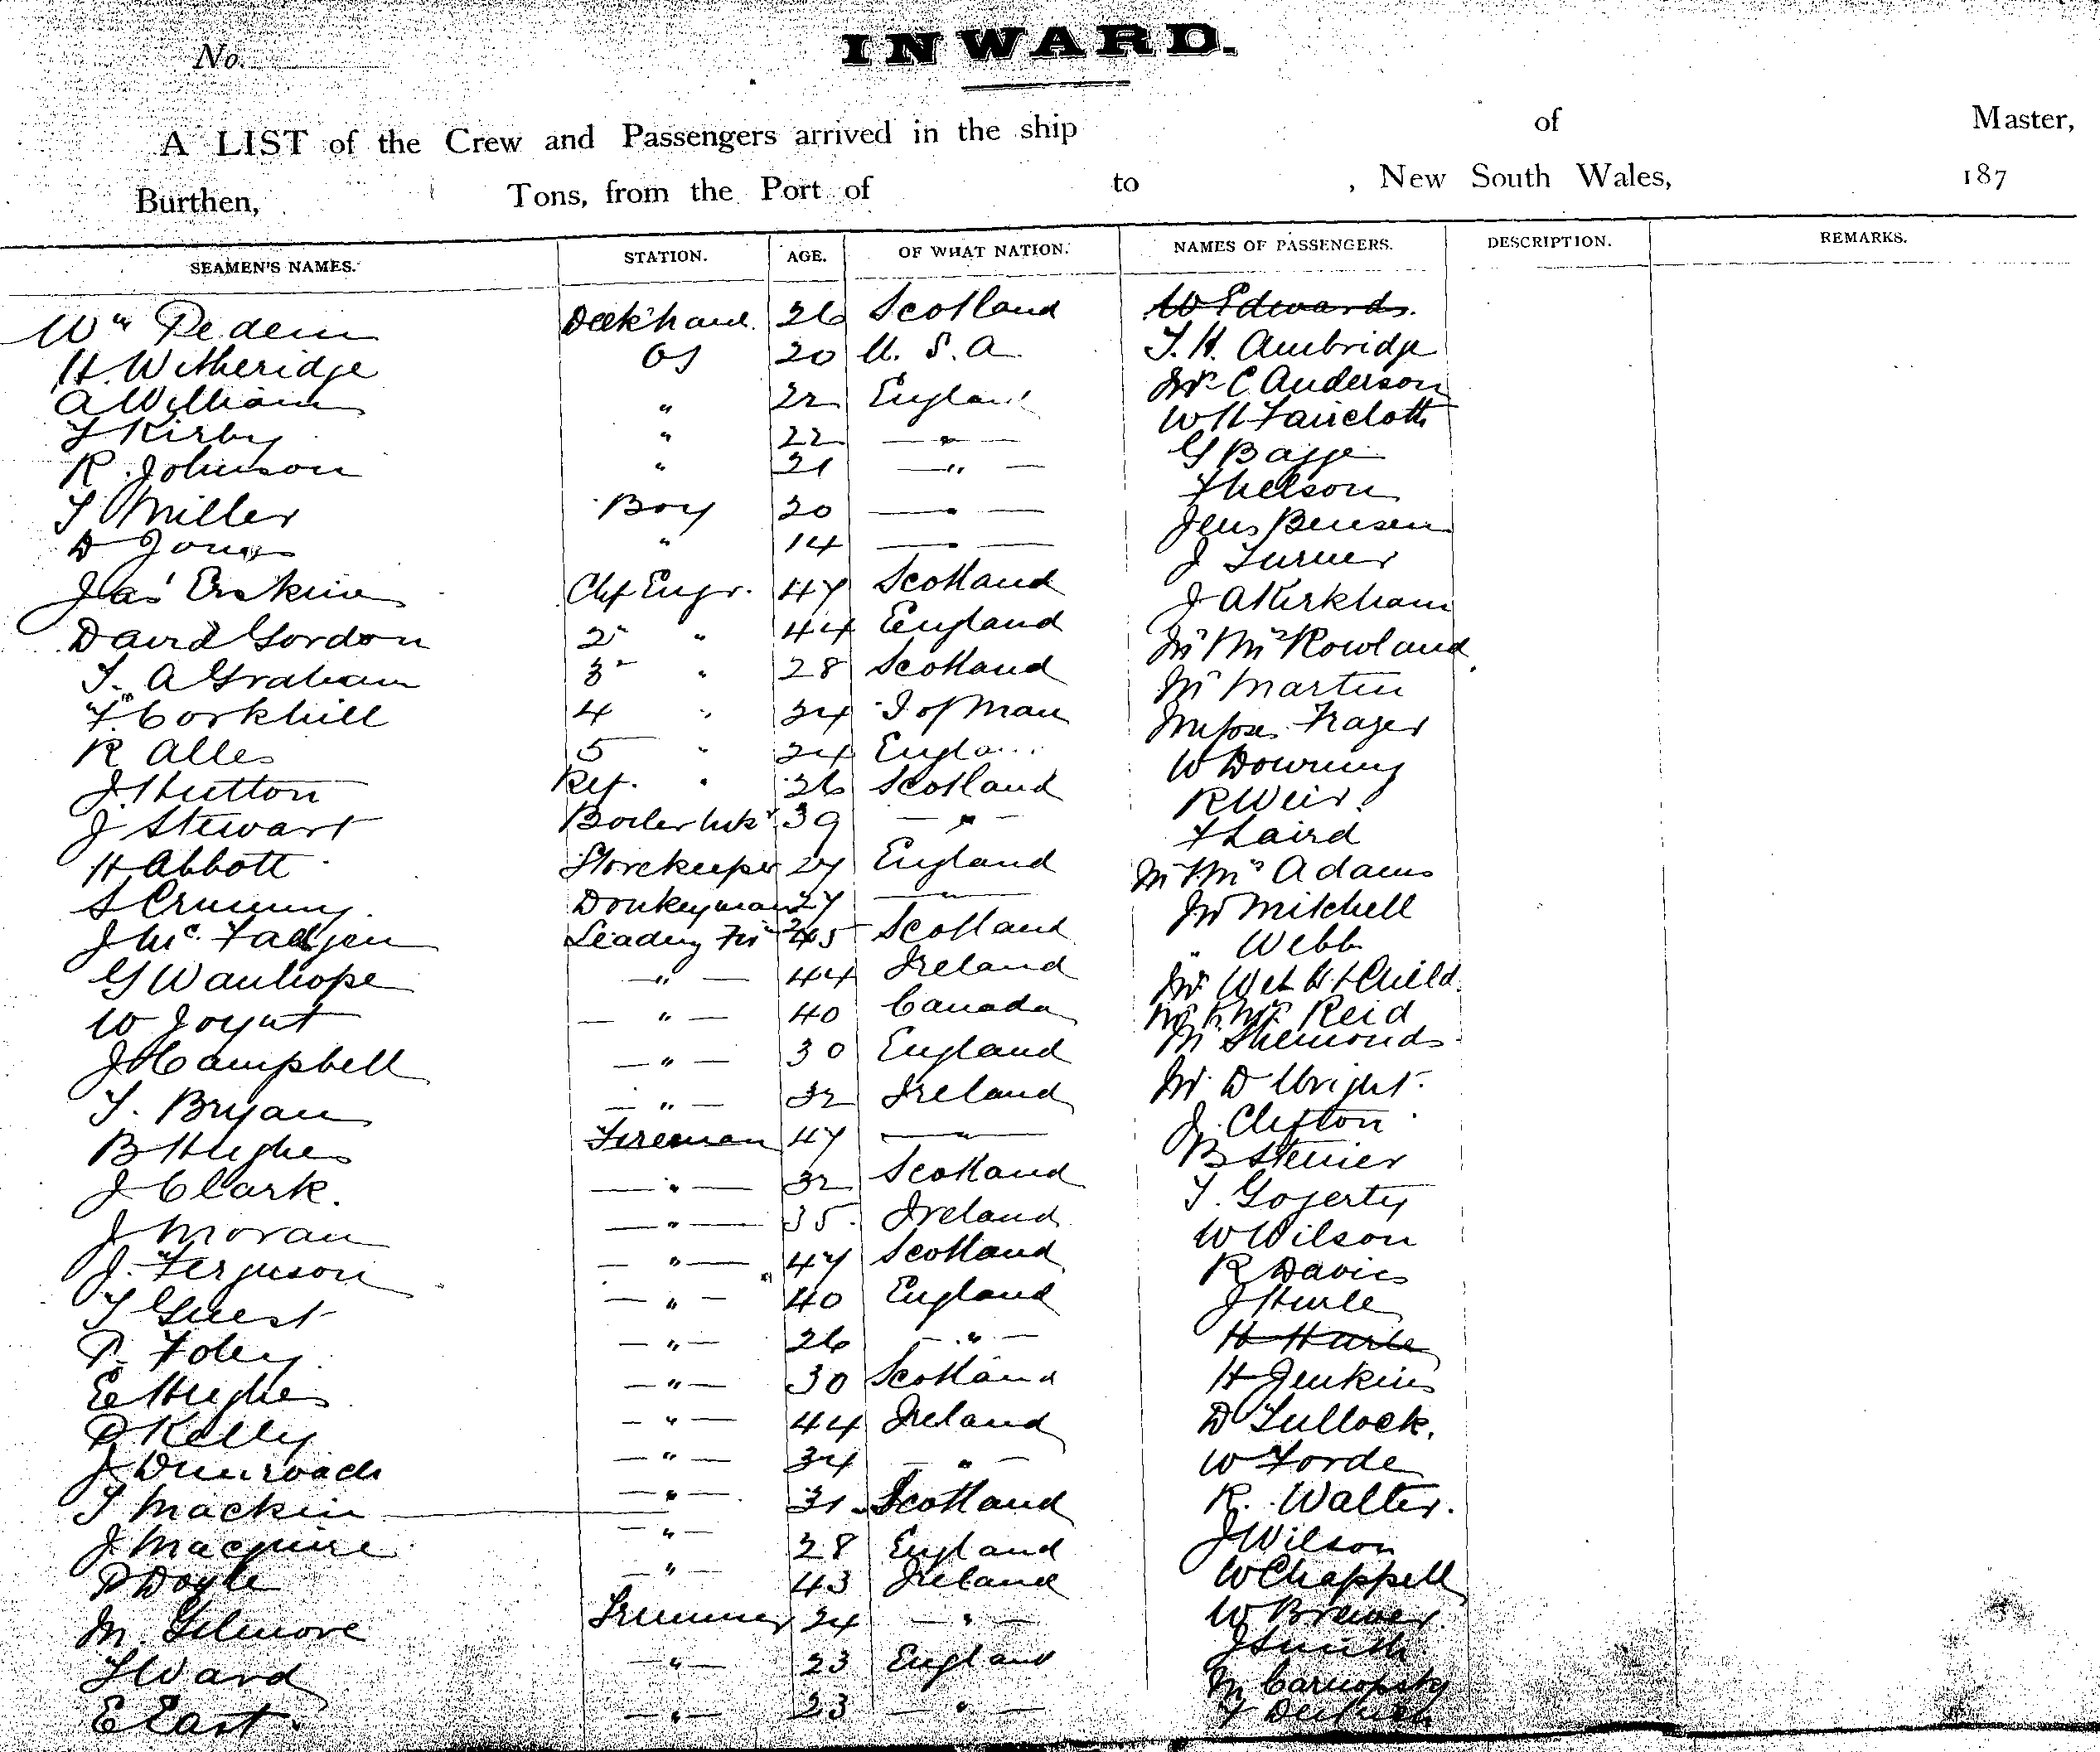 INWARD.
No.
A LIST of the Crew and Passengers arrived in the ship of Master,
Burthen, Tons, from the Port of to , New South Wales, 187
SEAMEN'S NAMES. STATION. AGE. OF WHAT NATION. NAMES OF PASSENGERS. DESCRIPTION. REMARKS.
Wm Pedem Deck hand 26 Scotland W Edwards.
H. Witheridge OS 20 U. S. A T. H. Ambridge
A William " 22 England Mr C Anderson
T Kirby " 22 — " — W H Faircloth
R. Johnson " 21 — " — G Bagge
T Miller Boy 20 — " — F Nelson
D Jones " 14 — " — Jens Bensen
Jas Erskine Chf Engr. 47 Scotland J Turner
David Gordon 2 " 44 England J A Kirkham
T. A Graham 3 " 28 Scotland Mr Mrs Rowland
F Corkhill 4 " 24 I of Man Mr Martin
R Alles 5 " 24 England Misses Frazer
J. Hutton Ref. " 26 Scotland W Downing
J Stewart 39 — " — R Weir.
H Abbott Storekeeper 27 England F Laird
S Donkeyman 27 — " — Mr Mrs Adams
J Mc. Leading Fir 45 Scotland Mr Mitchell
G Wauhope — " — 44 Ireland " Webb
W Joynt — " — 40 Canada & Child
J Campbell — " — 30 England Mr Mrs Reid
T. Bryan — " — 32 Ireland Mr
B Hughes Fireman 47 — " — Mr. D Wright.
J Clark. — " — 32 Scotland J. Clifton
J Moran — " — 35. Ireland B Steiner
J. Ferguson — " — 47 Scotland T. Gogerty
T Guest — " — 40 England W Wilson
P. Foley — " — 26 — " — R Davies
E Hughes — " — 30 Scotland J Hurle
P Kelly — " — 44 Ireland H Hurle
J — " — 34 — " — H Jenkins
T Mackin — " — 31 Scotland D Tullock.
J. Macguire — " — 28 England W Forde
P Doyle — " — 43 Ireland R. Walter.
M. Gilmore Trimmer 24 — " — J Wilson
T Ward — " — 23 England W Chappell
E East. — " — 23 — " — W Brewer
J Smith
M
F